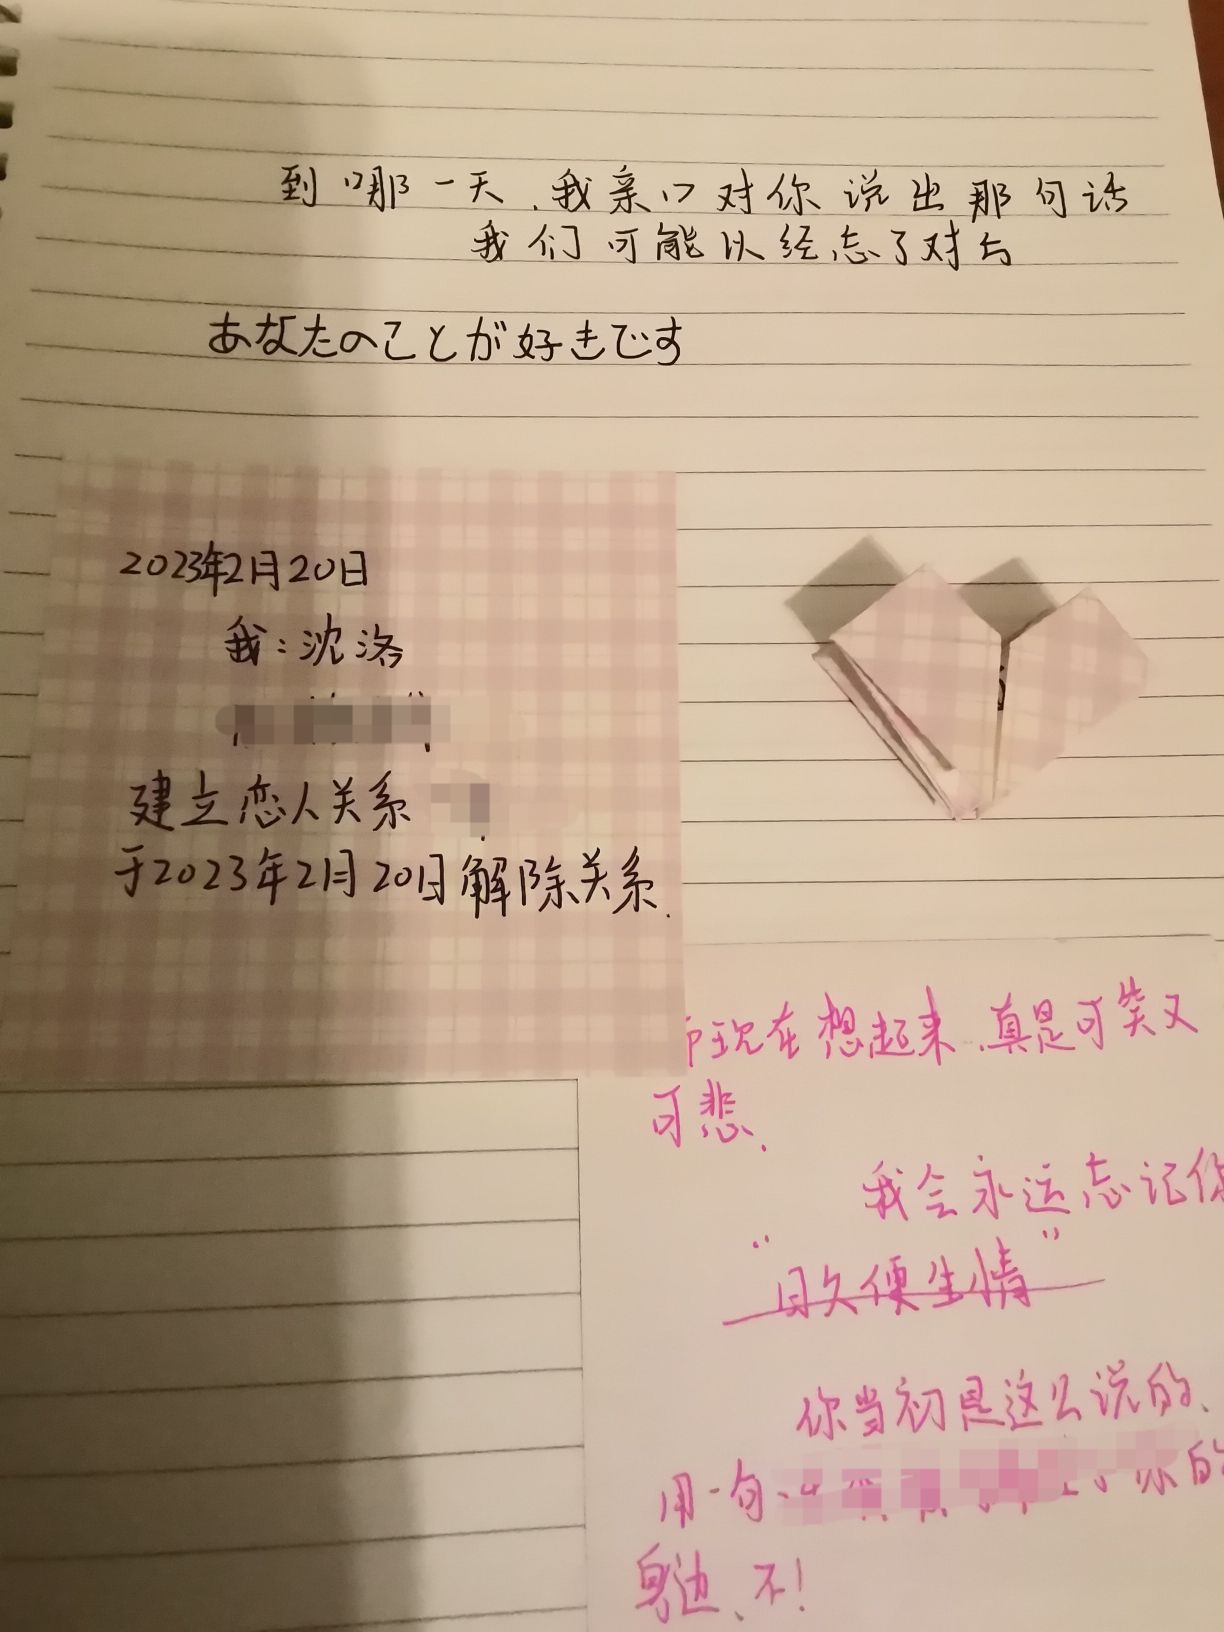 到哪一天，我亲口对你说出那句话
我们可能以经忘了对与
あなたのことが好きです
2023年2月20日
我：沈洛
建立恋人关系
于2023年2月20日解除关系.
现在想起来，真是可笑又
可悲.
我会永远忘记你
“日久便生情”
你当初是这么说的、
用一句
身边、不！